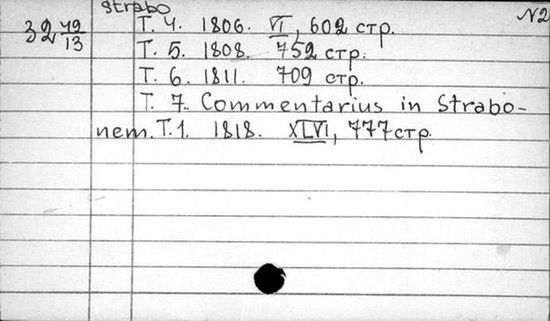 Strabo
№2
32 42/13
Т. 4. 1806. VI, 602 стр.
Т. 5. 1808. 752 стр.
Т. 6. 1811. 709 стр.
Т. 7. Commentarius in Strabo-
nem. Т. 1. 1818. XLVI, 777 стр.